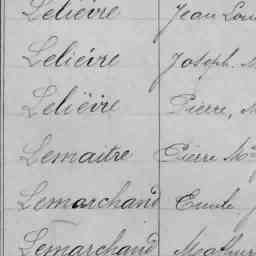 Lelièvre Jean Lou
Lelièvre Joseph, M
Lelièvre Pierre, M
Lemaitre Pierre Mie
Lemarchand Emile J
Lemarchand Mathur